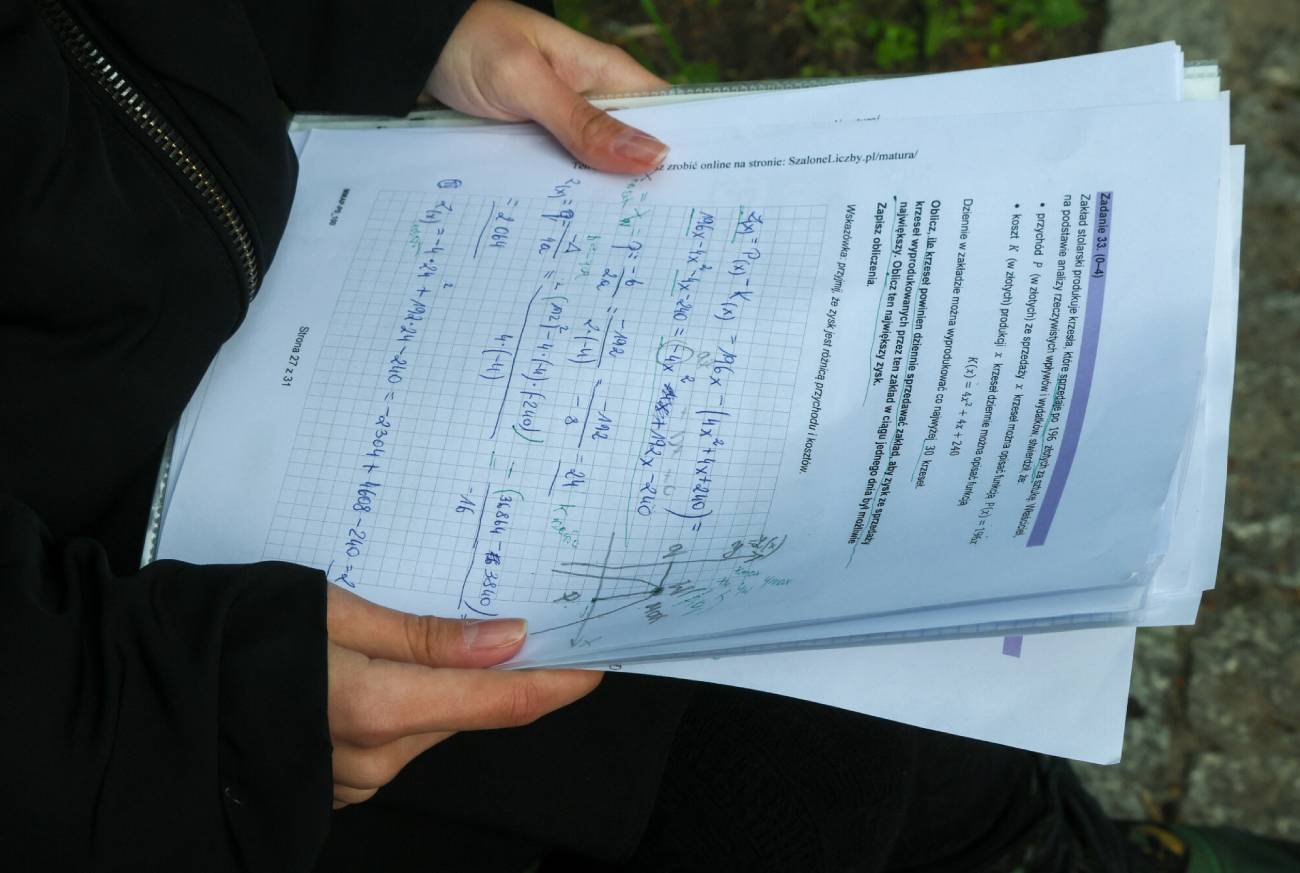 Zadanie 33. (0–4)
Zakład stolarski produkuje krzesła, które sprzedaje po 196 złotych za sztukę. Właściciel
na podstawie analizy rzeczywistych wpływów i wydatków stwierdził, że:
• przychód P (w złotych) ze sprzedaży x krzeseł można opisać funkcją P(x) = 196x
• koszt K (w złotych) produkcji x krzeseł dziennie można opisać funkcją
K(x) = 4x² + 4x + 240
Dziennie w zakładzie można wyprodukować co najwyżej 30 krzeseł.
Oblicz, ile krzeseł powinien dziennie sprzedawać zakład, aby zysk ze sprzedaży
krzeseł wyprodukowanych przez ten zakład w ciągu jednego dnia był możliwie
największy. Oblicz ten największy zysk.
Zapisz obliczenia.
Wskazówka: przyjmij, że zysk jest różnicą przychodu i kosztów.
Z(x) = P(x) - K(x) = 196x - (4x² + 4x + 240) =
196x - 4x² - 4x - 240 = -4x² + 192x - 240
x = p = -b / 2a = -192 / 2·(-4) = -192 / -8 = 24
Z(x) = q = -Δ / 4a = -(192² - 4·(-4)·(-240)) / 4(-4) = -(36864 - 3840) / -16 =
= 2064
Z(x) = -4·24² + 192·24 - 240 = -2304 + 4608 - 240 =
MMAP-P0_100
Strona 27 z 31
zrobić online na stronie: SzaloneLiczby.pl/matura/